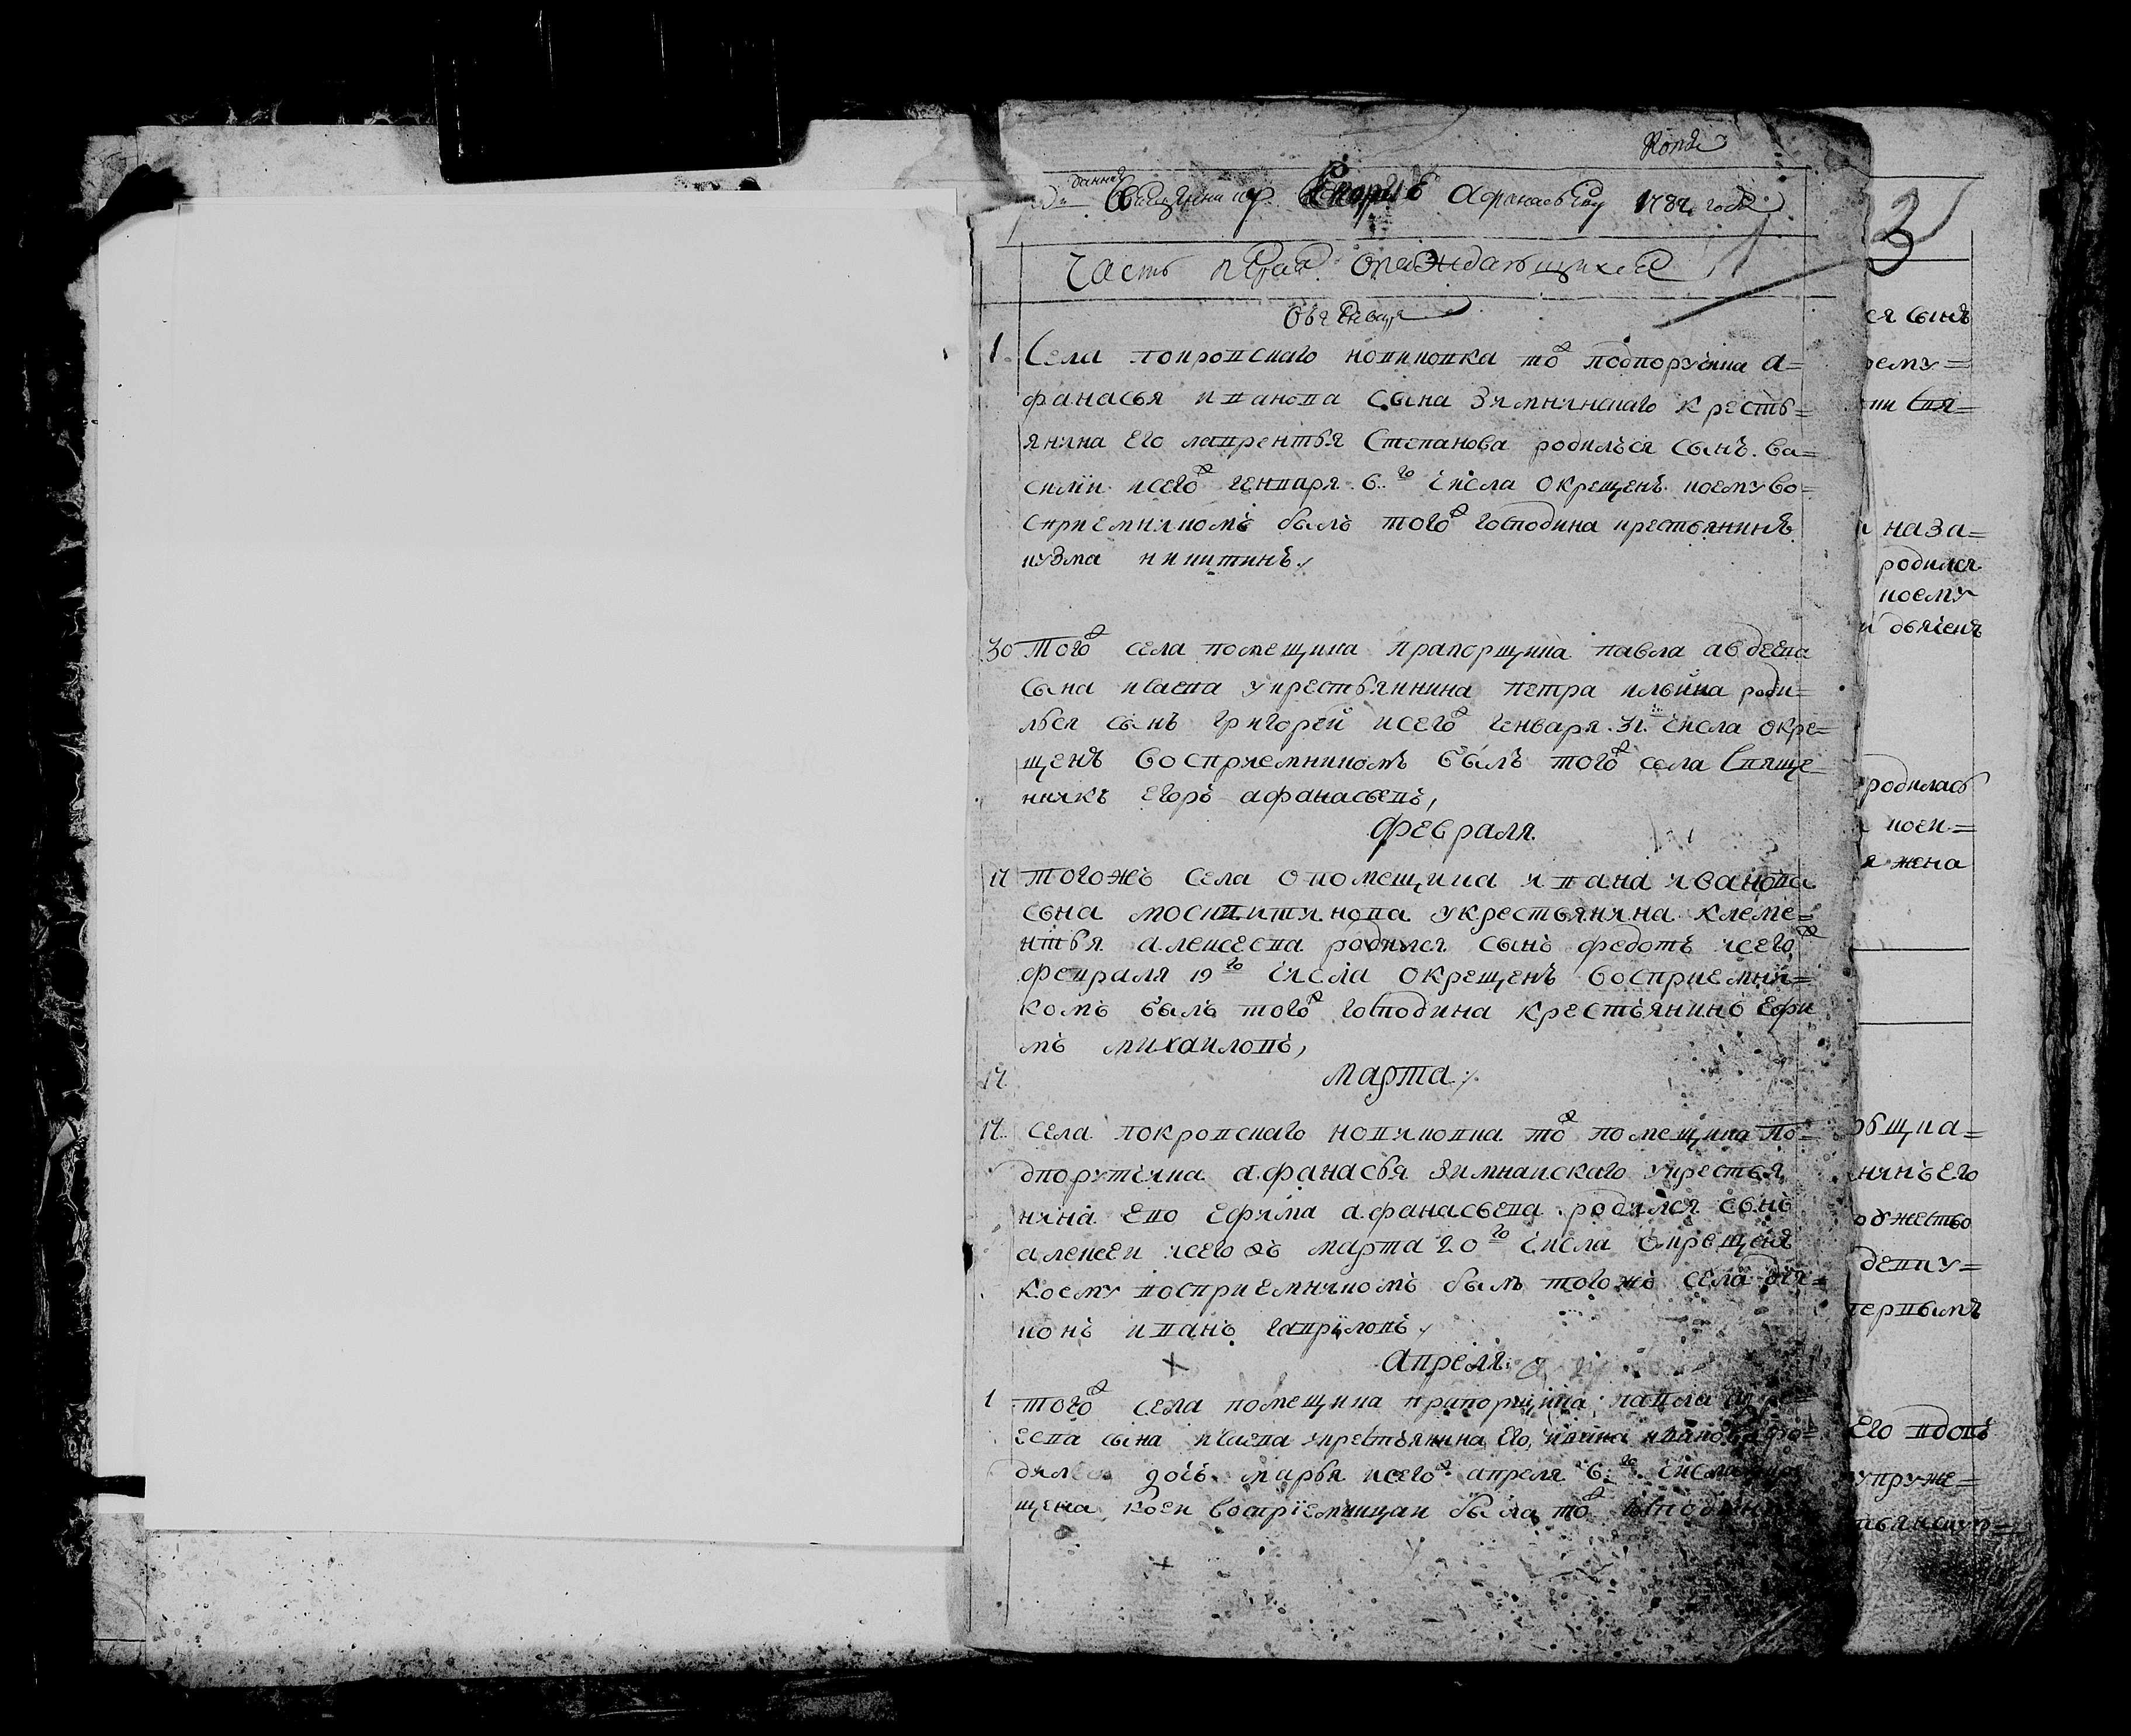 Копiя
данная Священнику Георгию Афанасьеву 1784 года
Часть первая о раждающихся
Овь генваря
1. Села покровскаго новиковка тож подпорутчика а=
фанасья иванова сына Зимнинскаго крестъ=
янина Его лаврентья Степанова родилъся сынъ ва=
силiи исегож генваря 6го числа окрещенъ коему во=
сприемникомъ былъ тогож господина крестьянинъ
кузма никитинъ
30 тогож села помещика прапорщика павла авдеева
сына исаева укрестьяннина петра ильина роди=
лься сынъ григореи исегож генваря 31 числа окре=
щенъ восприемникомъ былъ тогож села свяще=
никъ Егоръ афанасьевъ,
февраля
17 тогожъ села у помещика ивана иванова
сына москвитинова укрестьянина клеме=
нтья алексеева родился сынъ федотъ исегож
февраля 19го числа окрещенъ восприемни=
комъ былъ тогож господина крестьянинъ Ефи
мъ михаиловъ,
17
марта
17 села покровскаго новиковка тож помещика по=
дпорутчика афанасья Зимнинскаго укрестья
нина Ево Ефима афанасьева родился сынъ
алексеи исегожъ марта 20го числа окрещенъ
коему восприемникомъ былъ тогожъ села дья=
конъ иванъ гавриловъ
апреля
1 тогож села помещика прапорщика павла авде=
еева сына исаева укрестьянина Его, ивана иванова ро=
дилась дочь марья исегож апреля 6го числа
щена, коеи восприемницаи была тож
3
ся сынъ
рему=
наза=
родился
коему
дьяченъ
родилась
коеи=
жена
нинъ Его
дежку=
Его вдовъ
упруже=